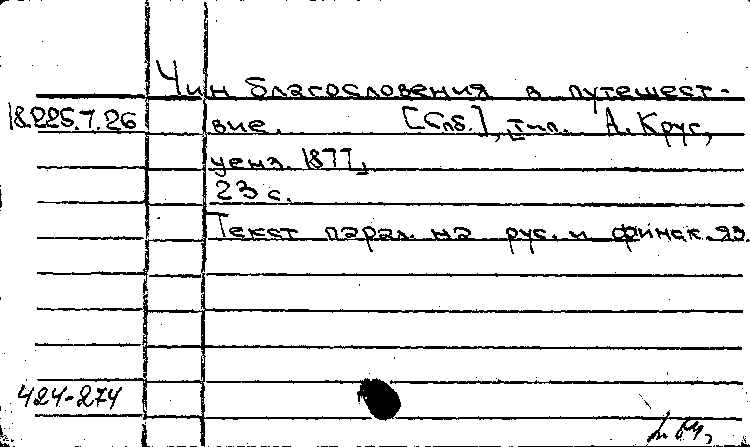 Чин благословения в путешест-
18.225.7.26 вие. [Спб.], тип. А. Крус,
ценз. 1877,
23 с.
Текст парал. на рус. и финск. яз.
424-274